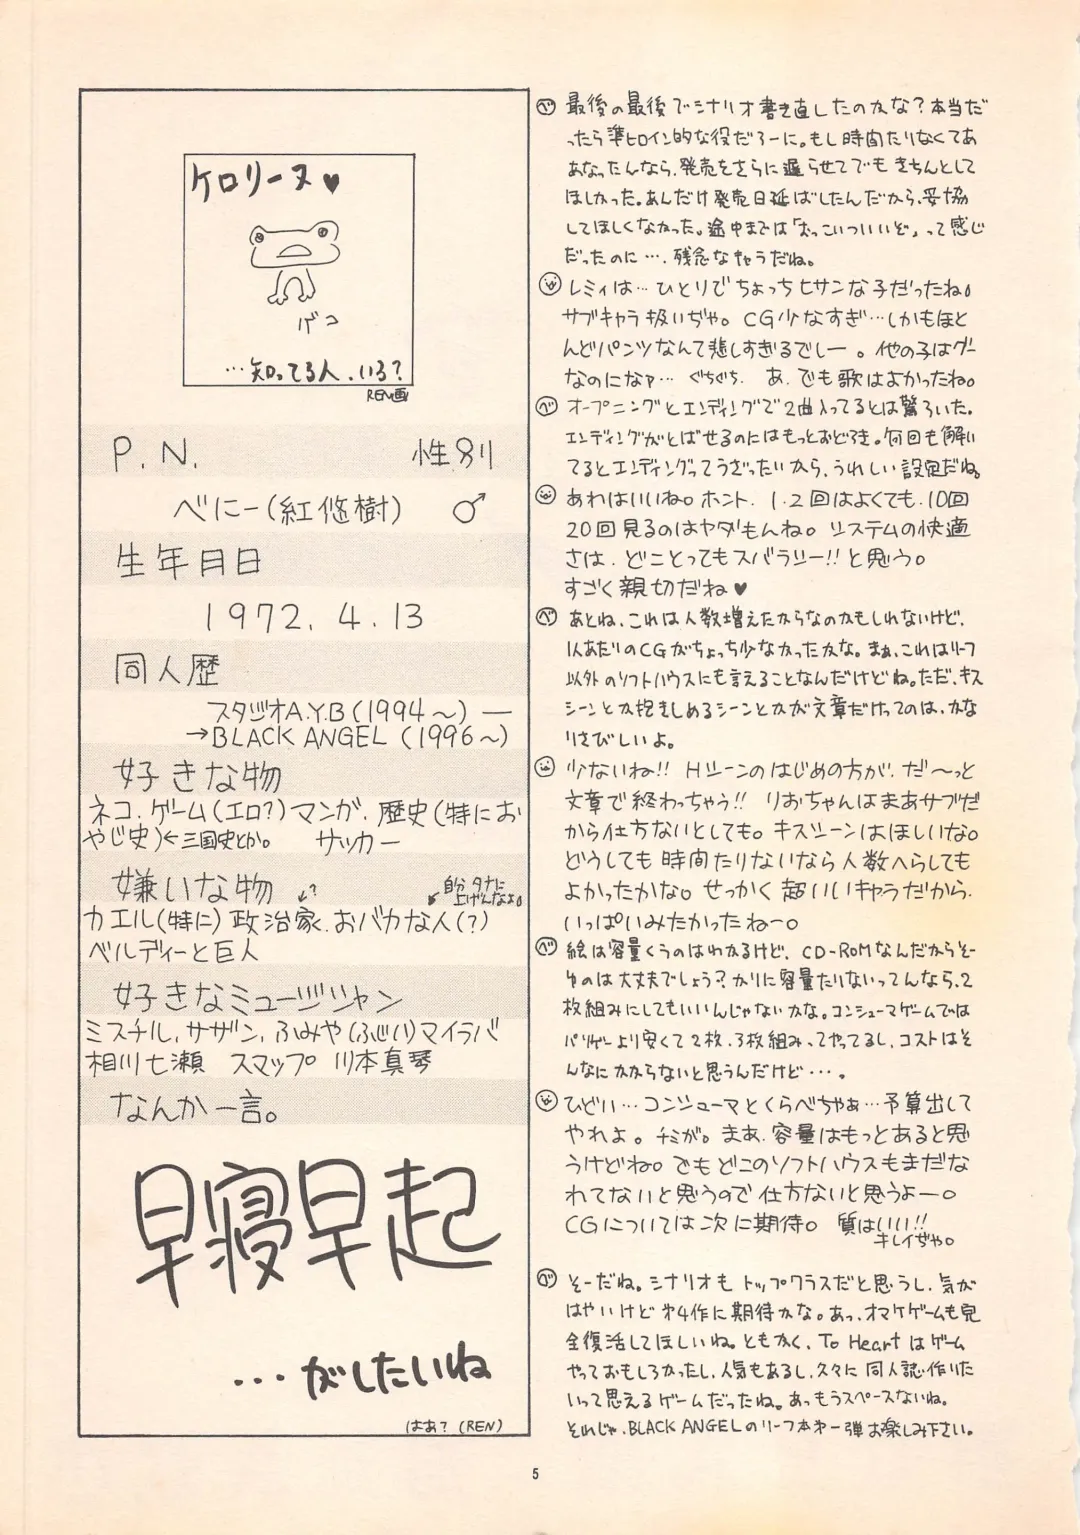 ケロリーヌ♥
ゲコ
…知ってる人、いる?
REN画
P.N. 性別
べにー(紅悠樹) ♂
生年月日
1972. 4. 13
同人歴
スタジオA.Y.B(1994～)―
→BLACK ANGEL (1996～)
好きな物
ネコ、ゲーム(エロ?)マンガ、歴史(特にお
やじ史)←三国史とか。 サッカー
嫌いな物 ↙? 自分 タナに
上げんなよ。
カエル(特に)政治家、おバカな人(?)
ベルディーと巨人
好きなミュージシャン
ミスチル、サザン、ふみや(ふじい)マイラバ
相川七瀬 スマップ 川本真琴
なんか一言。
早寝早起
…がしたいね
はあ?(REN)
べ 最後の最後でシナリオ書き直したのかな?本当だ
ったら準ヒロイン的な役だろーに。もし時間たりなくてあ
あなったんなら、発売をさらに遅らせてでもきちんとして
ほしかった。あんだけ発売日延ばしたんだから、妥協
してほしくなかった。途中までは「おっこいついいぞ」って感じ
だったのに…、残念なキャラだね。
レミィは…ひとりでちょっちヒサンな子だったね。
サブキャラ扱いぢゃ。CG少なすぎ…しかもほと
んどパンツなんて悲しすぎるでしー。他の子はグー
なのになァ… ぐちぐち. あ、でも歌はよかったね。
べ オープニングとエンディングで2曲入ってるとは驚ろいた。
エンディングがとばせるのにはもっとおどろき。何回も解い
てるとエンディングってうざったいから、うれしい設定だね。
あれはいいね。ホント、1.2回はよくても、10回
20回見るのはヤダもんね。システムの快適
さは、どことってもスバラシー!!と思う。
すごく親切だね♥
べ あとね、これは人数増えたからなのかもしれないけど、
1人あたりのCGがちょっち少なかったかな。まぁ、これはリーフ
以外のソフトハウスにも言えることなんだけどね。ただ、キス
シーンとか抱きしめるシーンとかが文章だけってのは、かな
りさびしいよ。
少ないね!! Hシーンのはじめの方が、だ～っと
文章で終わっちゃう!! りおちゃんはまあサブだ
から仕方ないとしても。キスシーンはほしいな。
どうしても時間たりないなら人数へらしても
よかったかな。せっかく超いいキャラだから、
いっぱいみたかったねー。
べ 絵は容量くうのはわかるけど、CD-ROMなんだからそー
ゆのは大丈夫でしょう?かりに容量たりないってんなら、2
枚組みにしてもいいんじゃないかな。コンシューマゲームでは
パソゲーより安くて2枚、3枚組みってやってるし、コストはそ
んなにかからないと思うんだけど・・・。
ひどい…コンシューマとくらべちゃぁ…予算出して
やれよ。チミが。まあ、容量はもっとあると思
うけどね。でもどこのソフトハウスもまだな
れてないと思うので仕方ないと思うよー。
CGについては次に期待。 質はいい!!
キレイぢゃ。
べ そーだね。シナリオもトップクラスだと思うし、気が
はやいけど第4作に期待かな。あっ、オマケゲームも完
全復活してほしいね。ともかく、To Heartはゲーム
やっておもしろかったし、人気もあるし、久々に同人誌作りた
いって思えるゲームだったね。あっもうスペースないね。
それじゃ、BLACK ANGELのリーフ本第一弾お楽しみ下さい。
5